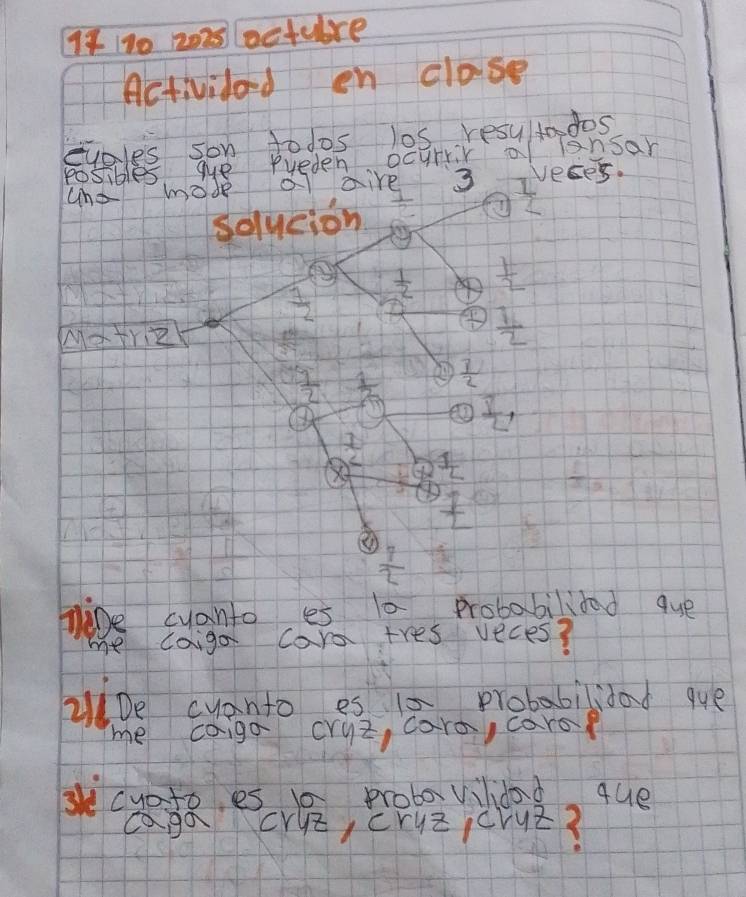 17 10 2025 octubre
Actividad en clase
cuales son todos los resultados
posibles que pueden ocurrir al lansar
una mode al aire 3 veces.
solución
Matriz
1/2
1/2
1/2
1/2
1/2
1/2
1/2
1/2
1/2
1/2
1/2
1/2
1/2
1/2
1) ¿De cuanto es la probabilidad que
me caiga cara tres veces?
2) ¿De cuanto es la probabilidad que
me caiga cruz, cara, cara?
3) ¿cuato es la probavilidad que
caga cruz, cruz, cruz?